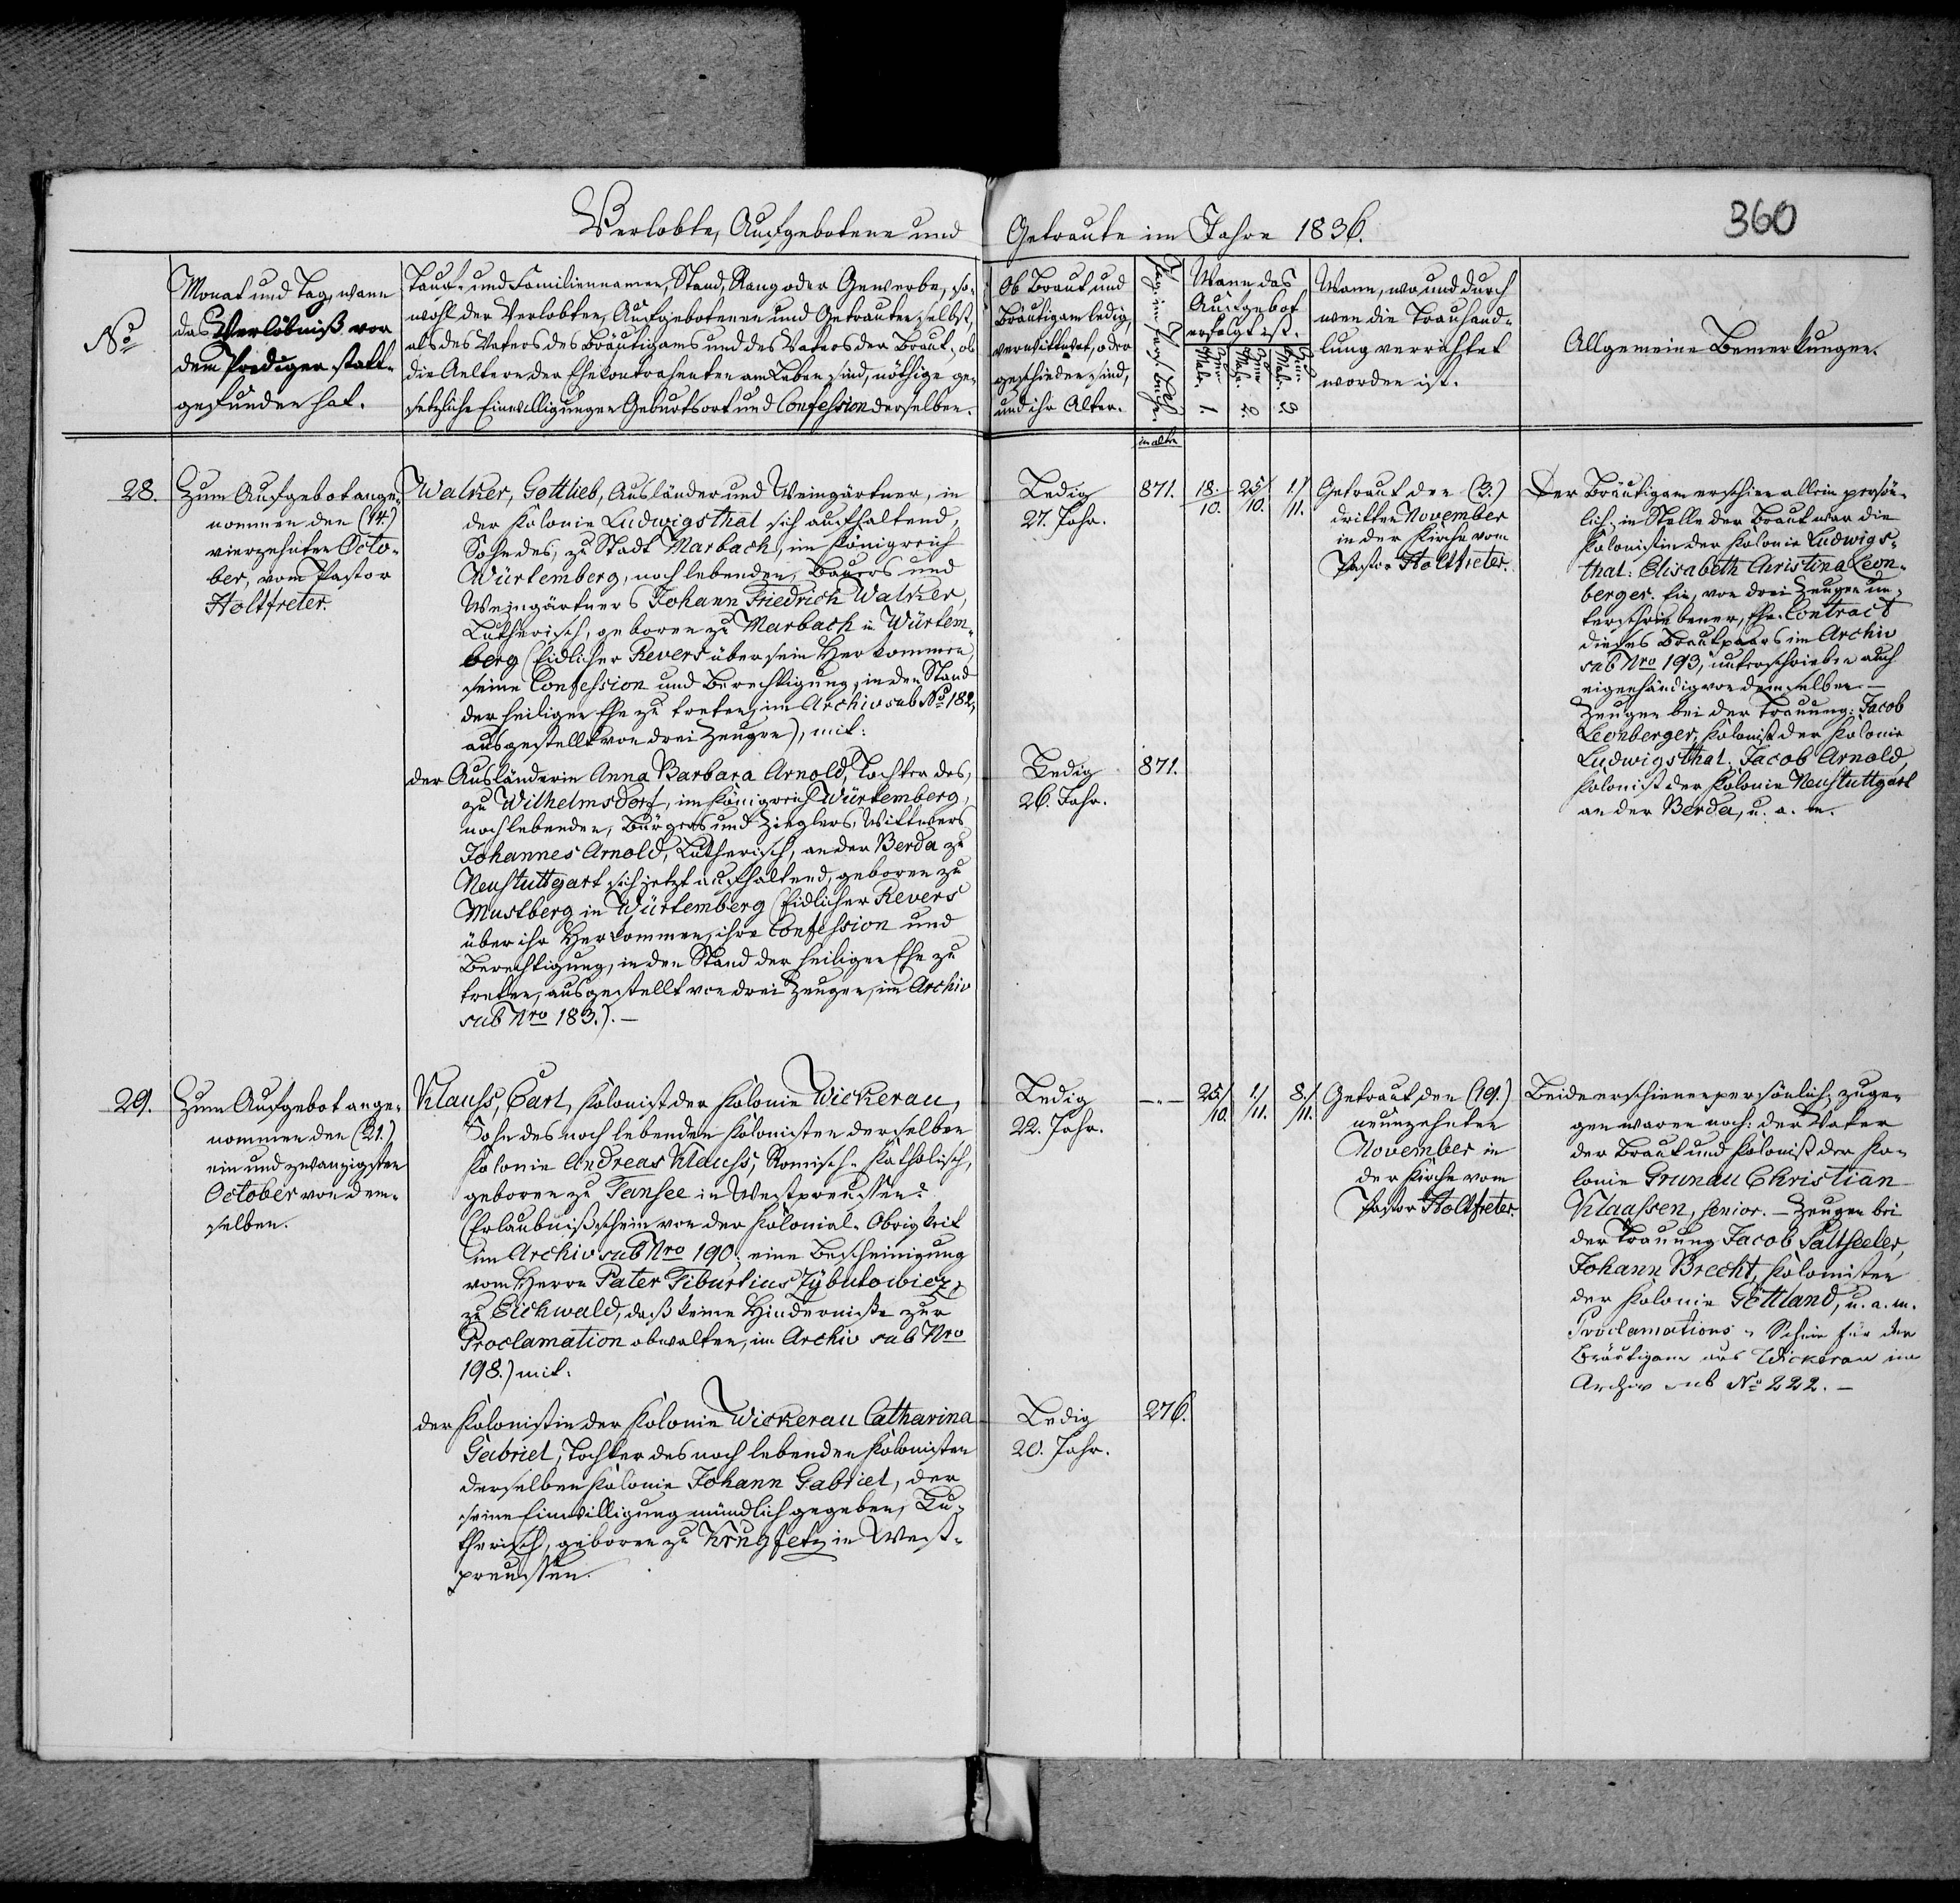 Verlobte, Aufgebotene und Getraute im Jahre 1836.
360
No
Monat und Tag, wann
das Verlöbniß vor
dem Prediger statt-
gefunden hat.
Tauf- und Familiennamen, Stand, Rang oder Gewerbe, so-
wohl der Verlobten, Aufgebotenen und Getrauten selbst,
als des Vaters des Bräutigams und des Vaters der Braut, ob
die Aeltern der Ehekontrahenten am Leben sind, nöthige ge-
setzliche Einwilligungen Geburtsort und Confession derselben.
Ob Braut und
Bräutigam ledig,
verwittwet, oder
geschieden sind,
und ihr Alter.
Pag. im Pers. Buche.
im alten
Wann das
Aufgebot
erfolgt ist.
Zum Male. 1.
Zum Male. 2.
Zum Male. 3.
Wann, wo und durch
wen die Trauhand-
lung verrichtet
worden ist.
Allgemeine Bemerkungen.
28.
Zum Aufgebot ange-
nommen den (14.)
vierzehnten Octo-
ber, vom Pastor
Holtfreter.
Walker, Gottlieb, Ausländer und Weingärtner, in
der Kolonie Ludwigsthal sich aufhaltend,
Sohn des, zu Stadt Marbach, im Königreich
Würtemberg, noch lebenden, Bauers und
Weingärtners Johann Friedrich Walker,
Lutherisch, geboren zu Marbach in Würtem-
berg (Eidlicher Revers über sein Herkommen,
seine Confession und Berechtigung, in den Stand
der heiligen Ehe zu treten, im Archiv sub No 182,
ausgestellt von drei Zeugen), mit:
der Ausländerin Anna Barbara Arnold, Tochter des,
zu Wilhelmsdorf, im Königreich Würtemberg,
noch lebenden, Bürgers und Zieglers, Wittwers
Johannes Arnold, Lutherisch, an der Berda zu
Neustuttgart sich jetzt aufhaltend, geboren zu
Mustberg in Würtemberg (Eidlicher Revers
über ihr Herkommen, ihre Confession und
Berechtigung, in den Stand der heiligen Ehe zu
treten, ausgestellt von drei Zeugen, im Archiv
sub Nro 183.). —
Ledig
27. Jahr.
871.
18./10.
25/10.
1./11.
Ledig
26. Jahr.
871.
Getraut den (3.)
dritten November
in der Kirche vom
Pastor Holtfreter.
Der Bräutigam erschien allein persön-
lich; in Stelle der Braut war die
Kolonistin der Kolonie Ludwigs-
thal: Elisabeth Christina Leon-
berger. Ein, von drei Zeugen un-
terschriebener, Ehe-Contract
dieses Brautpaars im Archiv
sub Nro 193, unterschrieben auch
eigenhändig von demselben. —
Zeugen bei der Trauung: Jacob
Leonberger, Kolonist der Kolonie
Ludwigsthal. Jacob Arnold,
Kolonist der Kolonie Neustuttgart
an der Berda, u. a. m.
29.
Zum Aufgebot ange-
nommen den (21.)
ein und zwanzigsten
October von dem-
selben.
Klauss, Carl, Kolonist der Kolonie Wickerau,
Sohn des noch lebenden Kolonisten derselben
Kolonie Andreas Klauss, Romisch-Katholisch,
geboren zu Tansee in Westpreussen.
(Erlaubnißschein von der Kolonial-Obrigkeit
im Archiv sub Nro 190; eine Bescheinigung
vom Herrn Pater Tiburtius Zybulowicz,
zu Eichwald, daß keine Hindernisse zur
Proclamation obwalten, im Archiv sub Nro
198.) mit:
der Kolonistin der Kolonie Wickerau Catharina
Gabriel, Tochter des noch lebenden Kolonisten
derselben Kolonie Johann Gabriel, der
seine Einwilligung mündlich gegeben, Lu-
therisch, geboren zu in West-
preussen.
Ledig
22. Jahr.
—"—
25./10.
1./11.
8./11.
Ledig
20. Jahr.
276.
Getraut den (19.)
neunzehnten
November in
der Kirche vom
Pastor Holtfreter.
Beide erschienen persönlich; zuge-
gen waren noch: der Vater
der Braut und Kolonist der Ko-
lonie Grunau Christian
Klaassen, senior. — Zeugen bei
der Trauung Jacob Saltseeler,
Johann Brecht, Kolonisten
der Kolonie Göttland, u. a. m.
Proclamations-Schein für den
Bräutigam aus Wickerau im
Archiv sub No 222. —